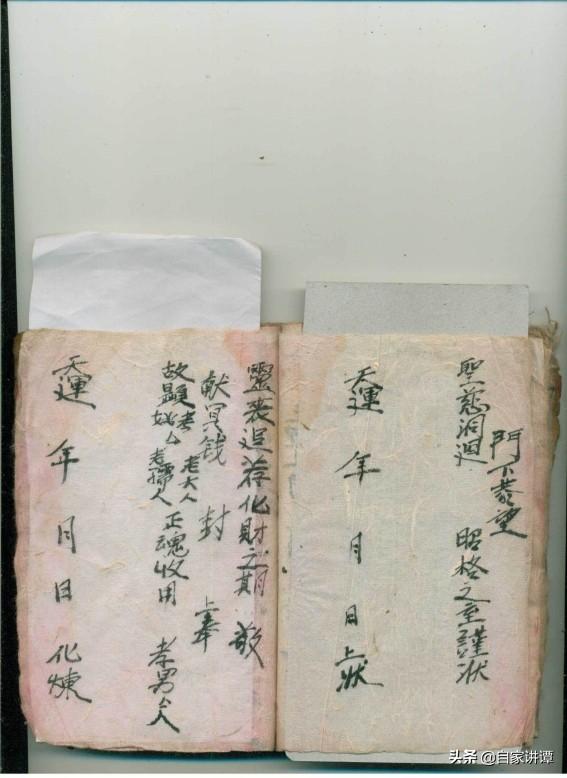 門下恭望
聖慈洞迴 昭格之至謹狀
天運 年 月 日上狀
靈喪追荐化財之期 敬
献冥钱 封 上奉
故顯考 老大人
妣 老孺人 正魂收用 孝男 人
天運 年 月 日 化煉
头条 @自家讲谭